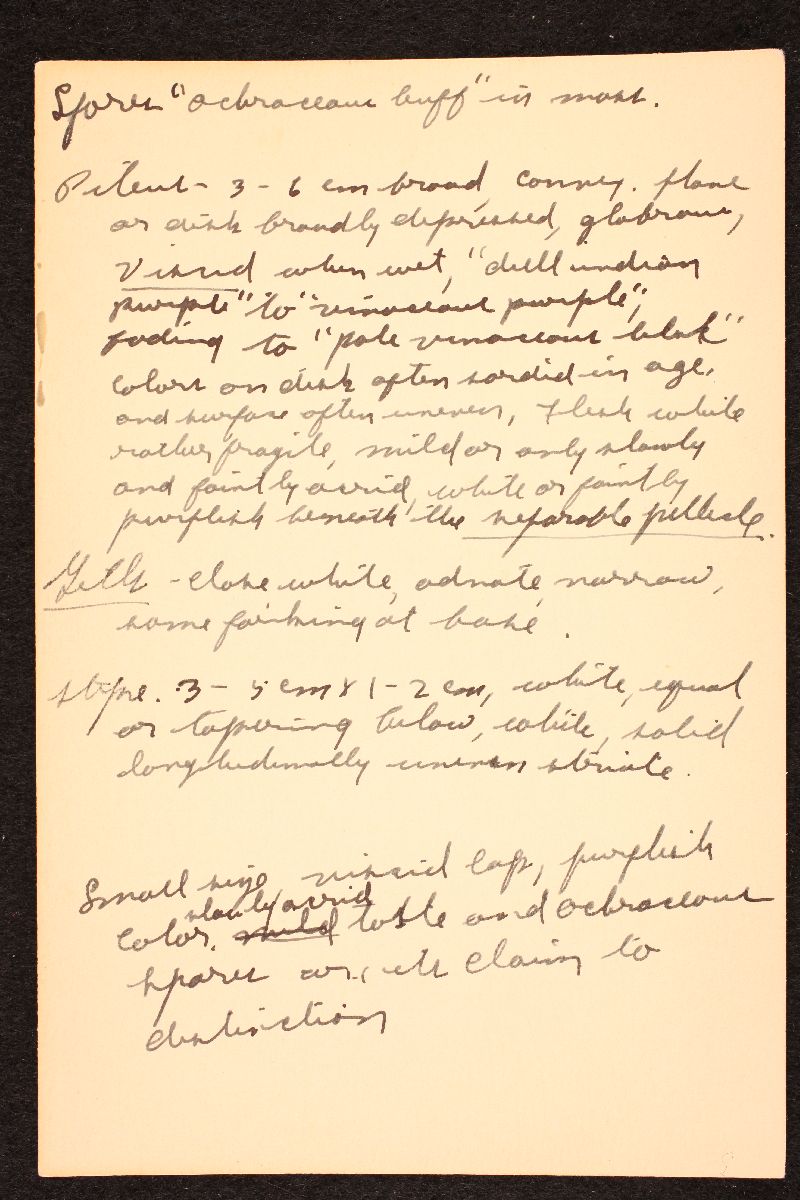 Spores "ochraceous buff" in mass.
Pileus - 3 - 6 cm broad, convex. plane
or disk broadly depressed, glabrous,
Viscid when wet, "dull indian
purple" to "vinaceous purple",
fading to "pale vinaceous lilac"
colors on disk often sordid in age,
and surface often uneven, flesh white
rather fragile, mild or only slowly
and faintly acrid, white or faintly
purplish beneath the separable pellicle.
Gills - close white, adnate, narrow,
some forking at base.
stipe. 3 - 5 cm x 1 - 2 cm, white, equal
or tapering below, white, solid
longitudinally uneven striate.
Small size, viscid cap, purplish
slowly acrid
color, mild taste and ochraceous
spores are its claim to
distinction